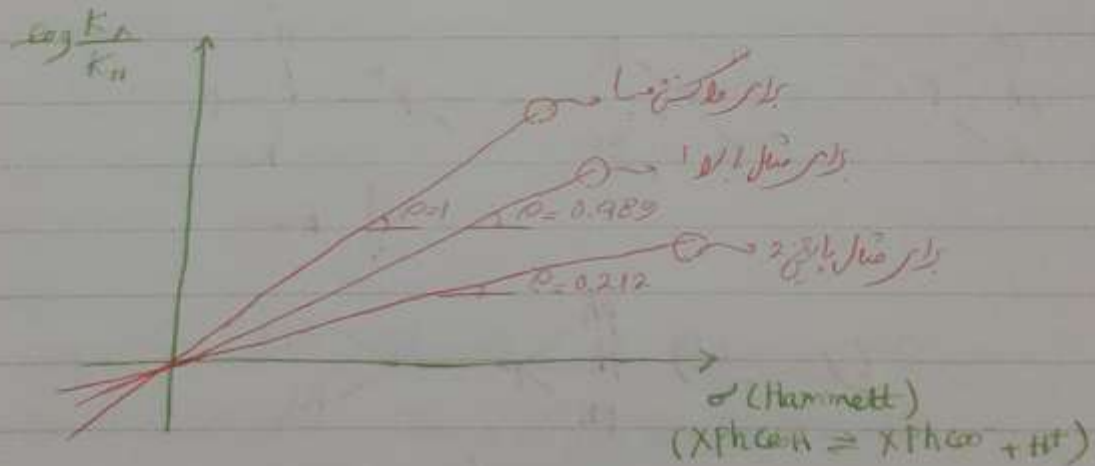 log K_X / K_H
برای واکنش مبنا
برای مثال بالا 1
ρ=1
ρ= 0.489
برای مثال پایین 2
ρ=0.212
σ (Hammett)
(XPhCOOH ⇌ XPhCOO⁻ + H⁺)